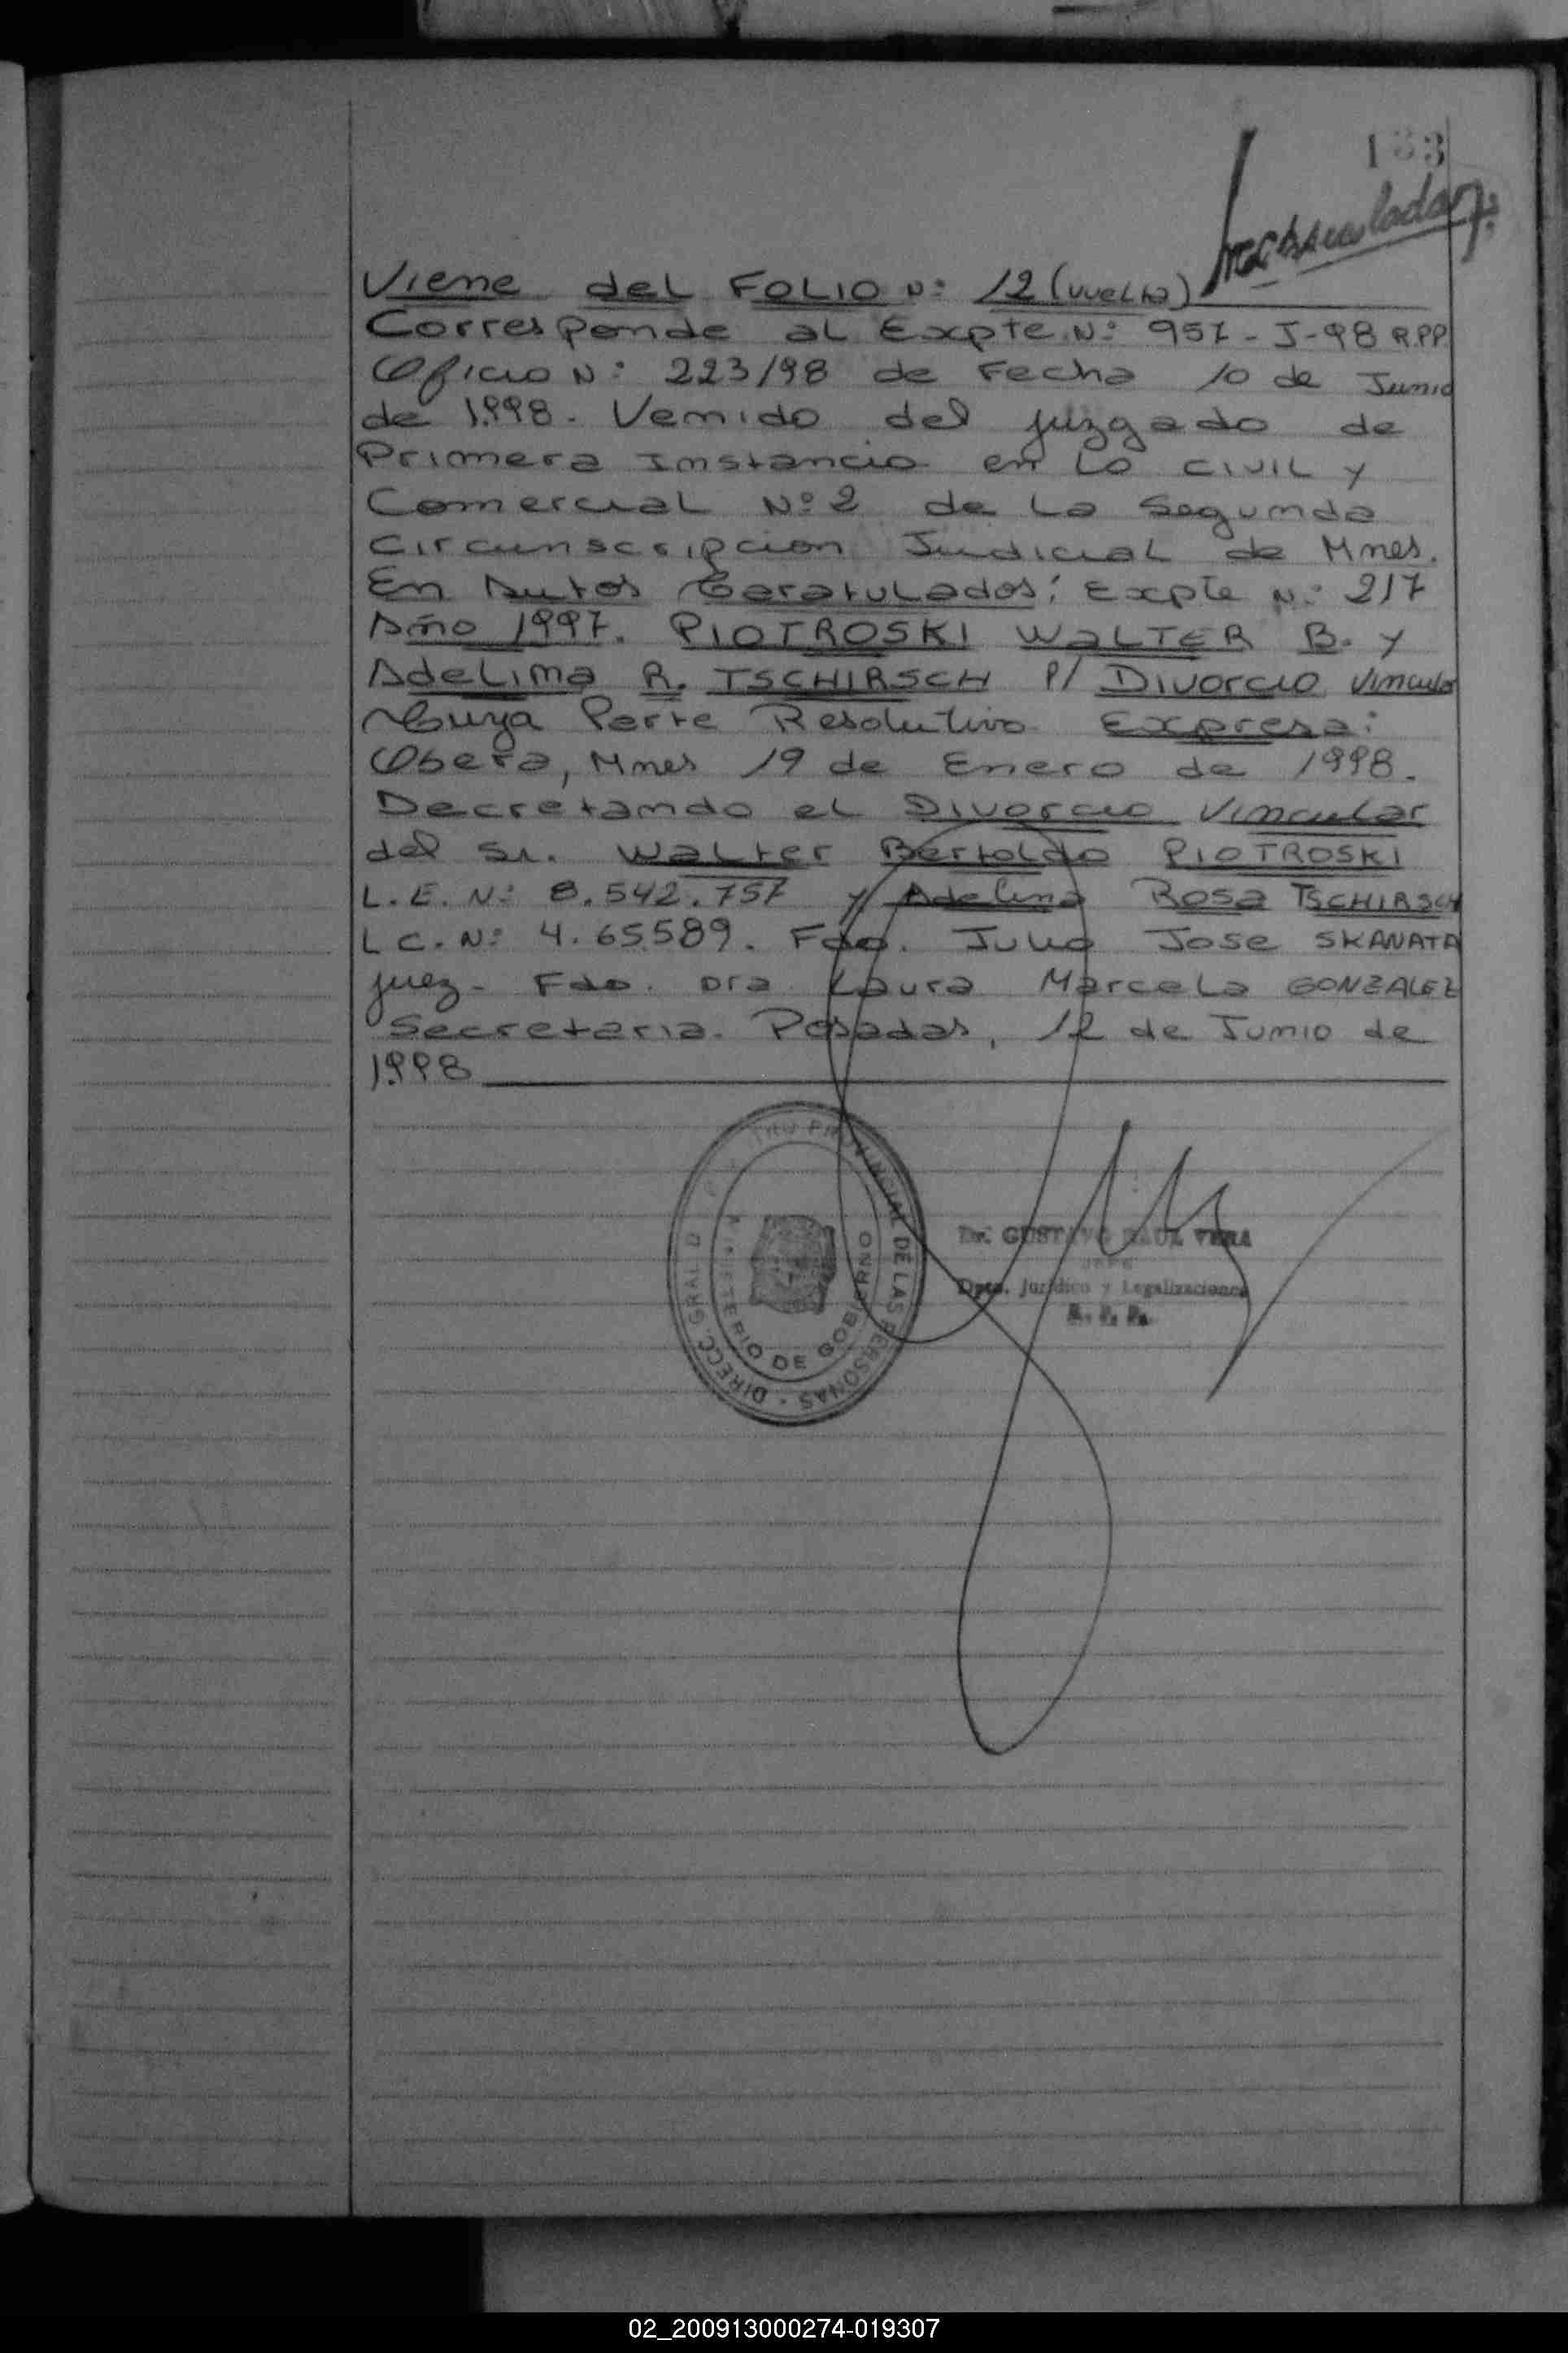 133
Viene del FOLIO N: 12 (vuelta)
Corresponde al Expte N: 957-J-98 R.P.P.
Oficio N: 223/98 de Fecha 10 de Junio
de 1.998. Venido del juzgado de
Primera Instancia en Lo CIVIL y
Comercial Nº 2 de La Segunda
Circunscripcion Judicial de Mnes.
En Autos Caratulados: Expte N: 217
Año 1997. PIOTROSKI WALTER B. y
Adelina R. TSCHIRSCH P/ Divorcio Vincular
Cuya Parte Resolutiva Expresa:
Obera, Mnes 19 de Enero de 1998.
Decretando el Divorcio Vincular
del Sr. Walter Bertoldo PIOTROSKI
L.E. N: 8.542.757 y Adelina Rosa TSCHIRSCH
L C. N: 4.65589. Fdo. Julio Jose SKANATA
juez- Fdo. Dra Laura Marcela GONZALEZ
Secretaria. Posadas, 12 de Junio de
1.998
DIRECC. GRAL. PROVINCIAL DE LAS PERSONAS
MINISTERIO DE GOBIERNO
Dr. GUSTAVO RAUL VERA
JEFE
Dpto. Jurídico y Legalizaciones
R. P. P.
02_200913000274-019307